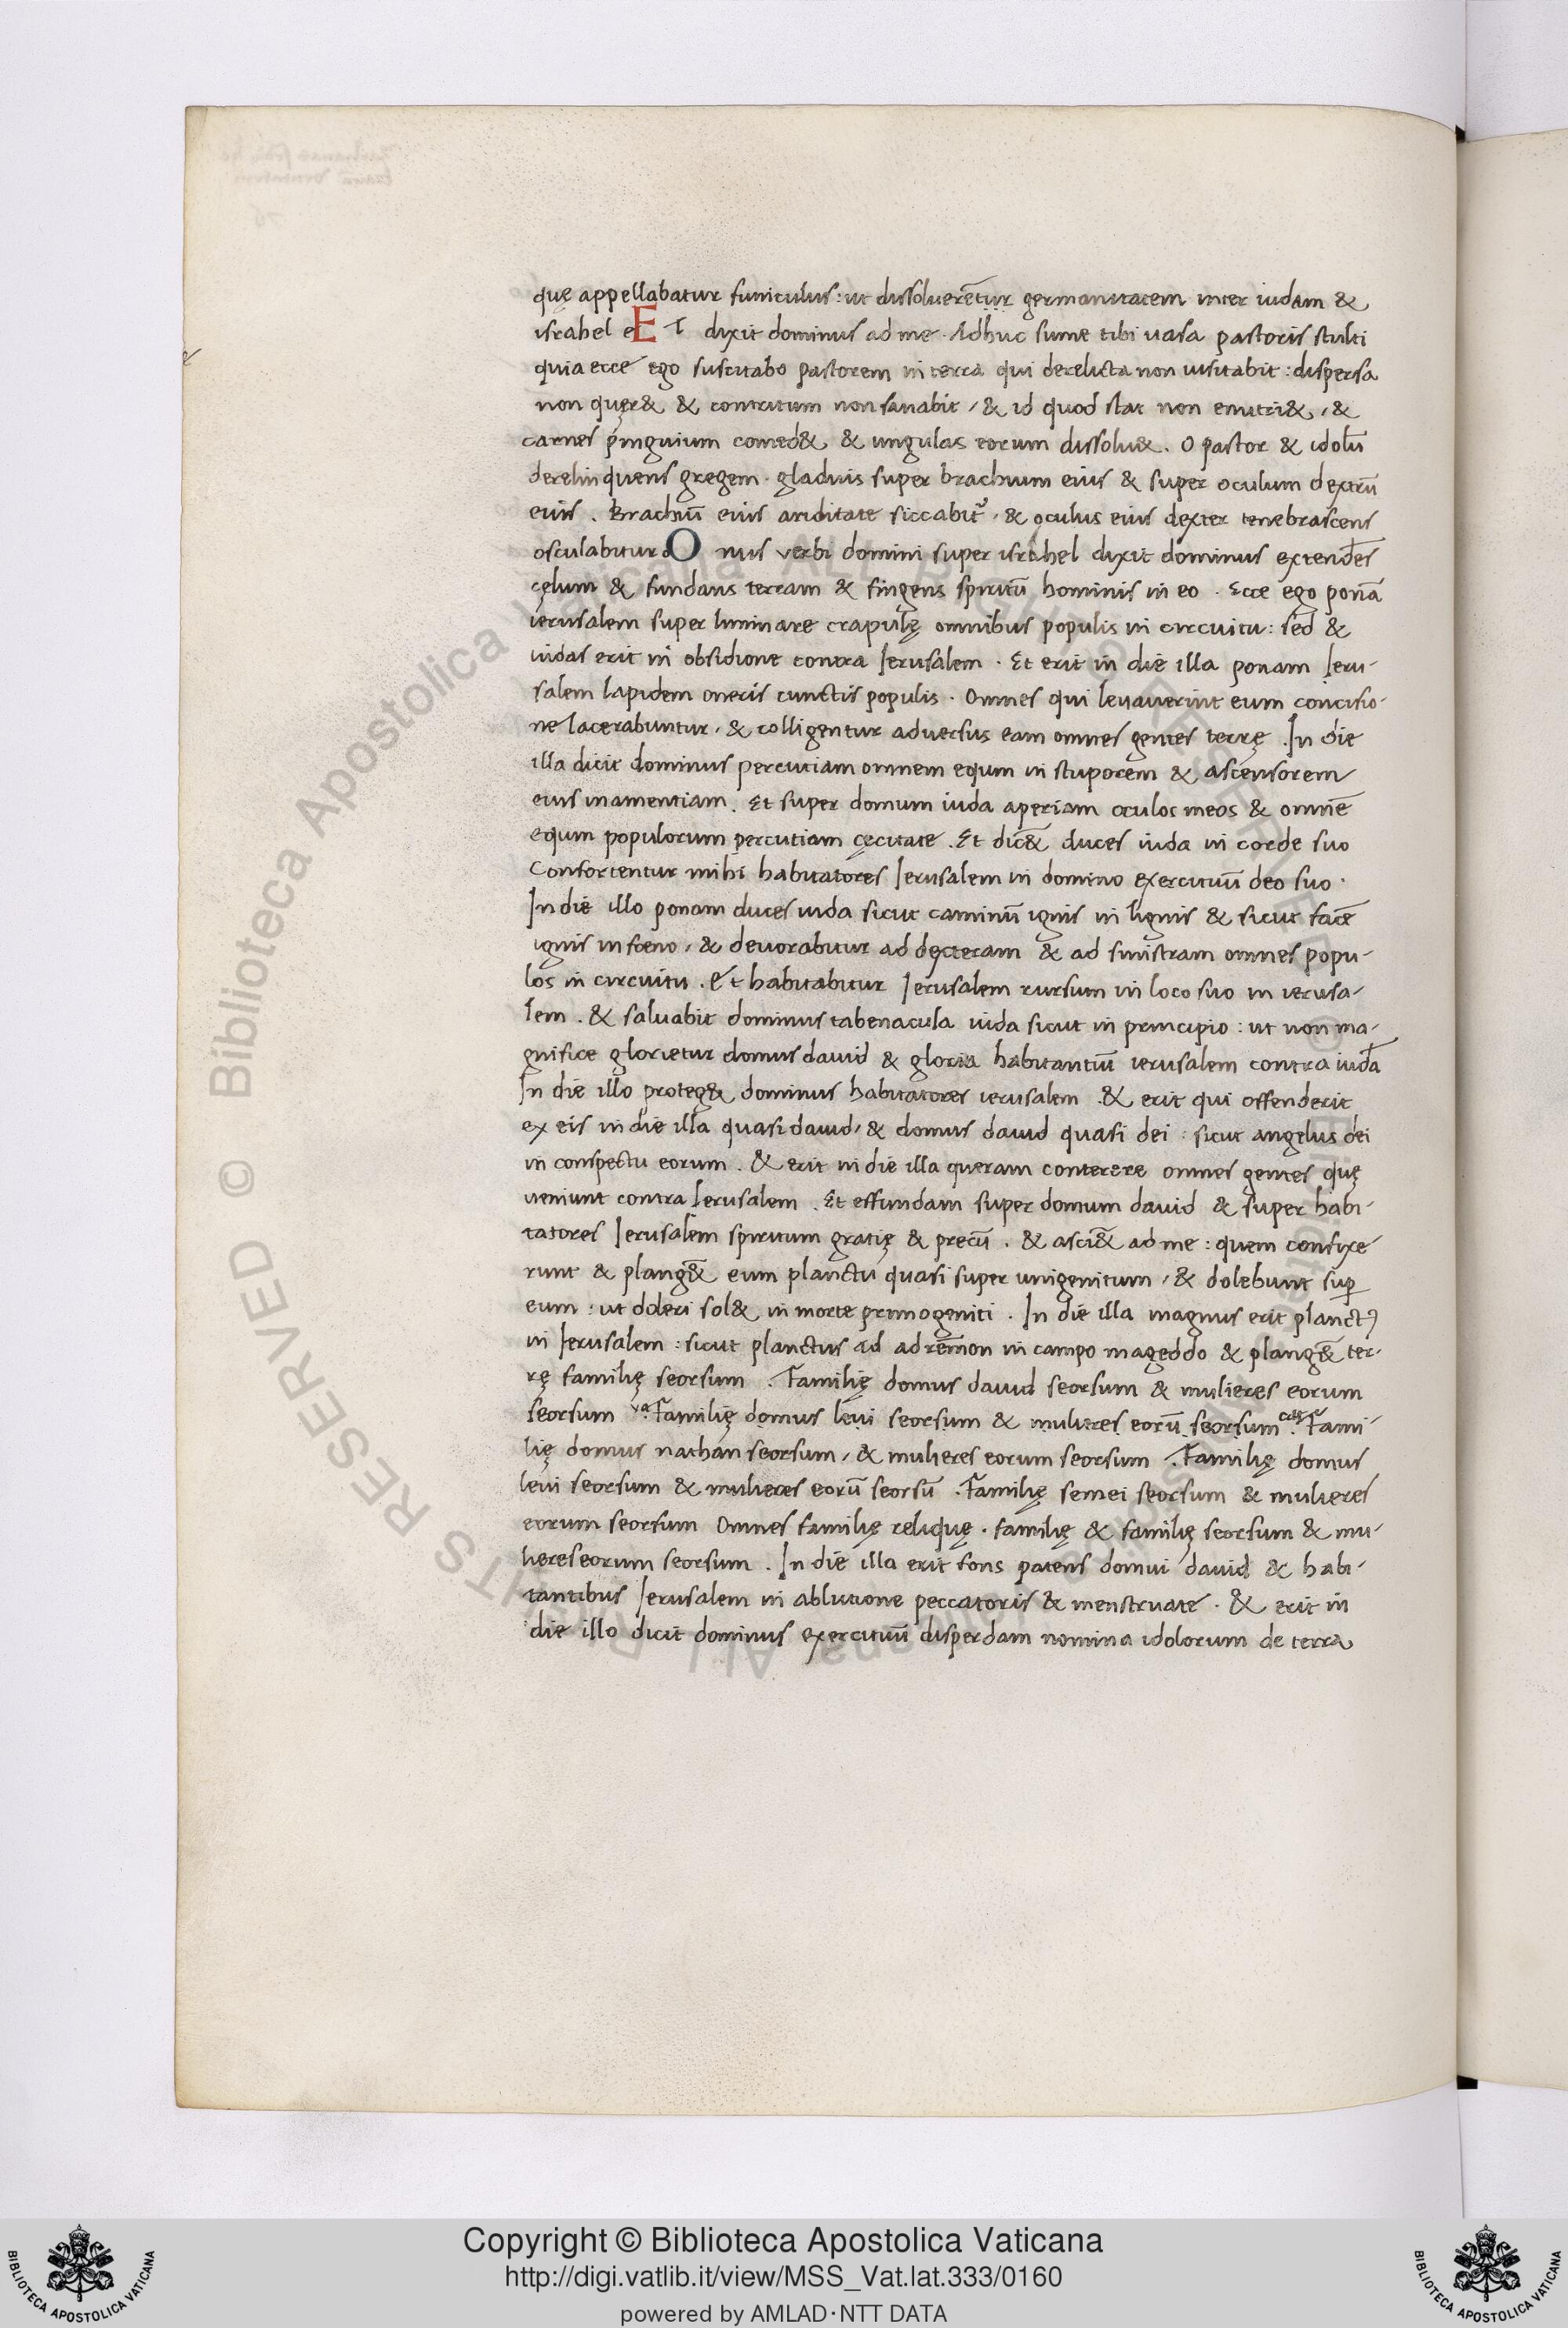 quę appellabatur funiculus: ut dissoluerẽtur germanitatem inter iudam &
israhel e ET dixit dominus ad me. Adhuc sume tibi uasa pastoris stulti
quia ecce ego suscitabo pastorem in terra qui derelicta non uisitabit: dispersa
non quęr& & contritum non sanabit, & id quod stat non enutri&, &
carnes pinguium comed& & ungulas eorum dissolu&. O pastor & idolũ
derelinquens gregem. gladius super brachium eius & super oculum dextrũ
eius. Brachiũ eius ariditate siccabit᷑, & oculus eius dexter tenebrascens
osculabitur o O nus verbi domini super israhel dixit dominus extendẽs
cęlum & fundans terram & fingens spiritũ hominis in eo. Ecce ego ponã
ierusalem super luminare crapulę omnibus populis in circuitu: sed &
iudas erit in obsidione contra Ierusalem. Et erit in die illa ponam Ieru-
salem lapidem oneris cunctis populis. Omnes qui leuauerint eum concisio-
ne lacerabuntur, & colligentur aduersus eam omnes gentes terrę. In die
illa dicit dominus percutiam omnem equm in stuporem & ascensorem
eius inamentiam. Et super domum iuda aperiam oculos meos & omnẽ
equm populorum percutiam cęcitate. Et dic&̃ duces iuda in corde suo
Confortentur mihi habitatores Ierusalem in domino exercituũ deo suo.
In die illo ponam duces iuda sicut caminũ ignis in lignis & sicut facẽ
ignis in foeno, & deuorabitur ad dexteram & ad sinistram omnes popu-
los in circuitu. Et habitabitur Ierusalem rursum in loco suo in ierusa-
lem. & saluabit dominus tabenacula iuda sicut in principio: ut non ma-
gnifice glorietur domus dauid & gloria habitantiũ ierusalem contra iudã
In die illo proteg& dominus habitatores ierusalem. & erit qui offenderit
ex eis in die illa quasi dauid, & domus dauid quasi dei: sicut angelus dei
in conspectu eorum. & erit in die illa queram conterere omnes gentes quę
ueniunt contra Ierusalem. Et effundam super domum dauid & super habi-
tatores Ierusalem spiritum gratię & precũ. & asci&̃ ad me: quem confixe
runt & plang&̃ eum planctu quasi super unigenitum, & dolebunt suꝑ
eum: ut doleri sol& in morte primogeniti. In die illa magnus erit planctꝰ
in Ierusalem: sicut planctus ad adremon in campo mageddo & plang&̃ ter-
rę familię seorsum. Familię domus dauid seorsum & mulieres eorum
seorsum va. Familię domus leui seorsum & mulieres eorũ seorsum cat. Fami-
lię domus nathan seorsum, & mulieres eorum seorsum. Familię domus
leui seorsum & mulieres eorũ seorsũ. Familię semei seorsum & mulieres
eorum seorsum Omnes familię reliquę. familię & familię seorsum & mu-
lieres eorum seorsum. In die illa erit fons patens domui dauid & habi-
tantibus Ierusalem in ablutione peccatoris & menstruate. & erit in
die illo dicit dominus exercituũ disperdam nomina idolorum de terra
© Biblioteca Apostolica Vaticana ALL RIGHTS RESERVED
Copyright © Biblioteca Apostolica Vaticana
http://digi.vatlib.it/view/MSS_Vat.lat.333/0160
powered by AMLAD·NTT DATA
BIBLIOTECA APOSTOLICA VATICANA
BIBLIOTECA APOSTOLICA VATICANA